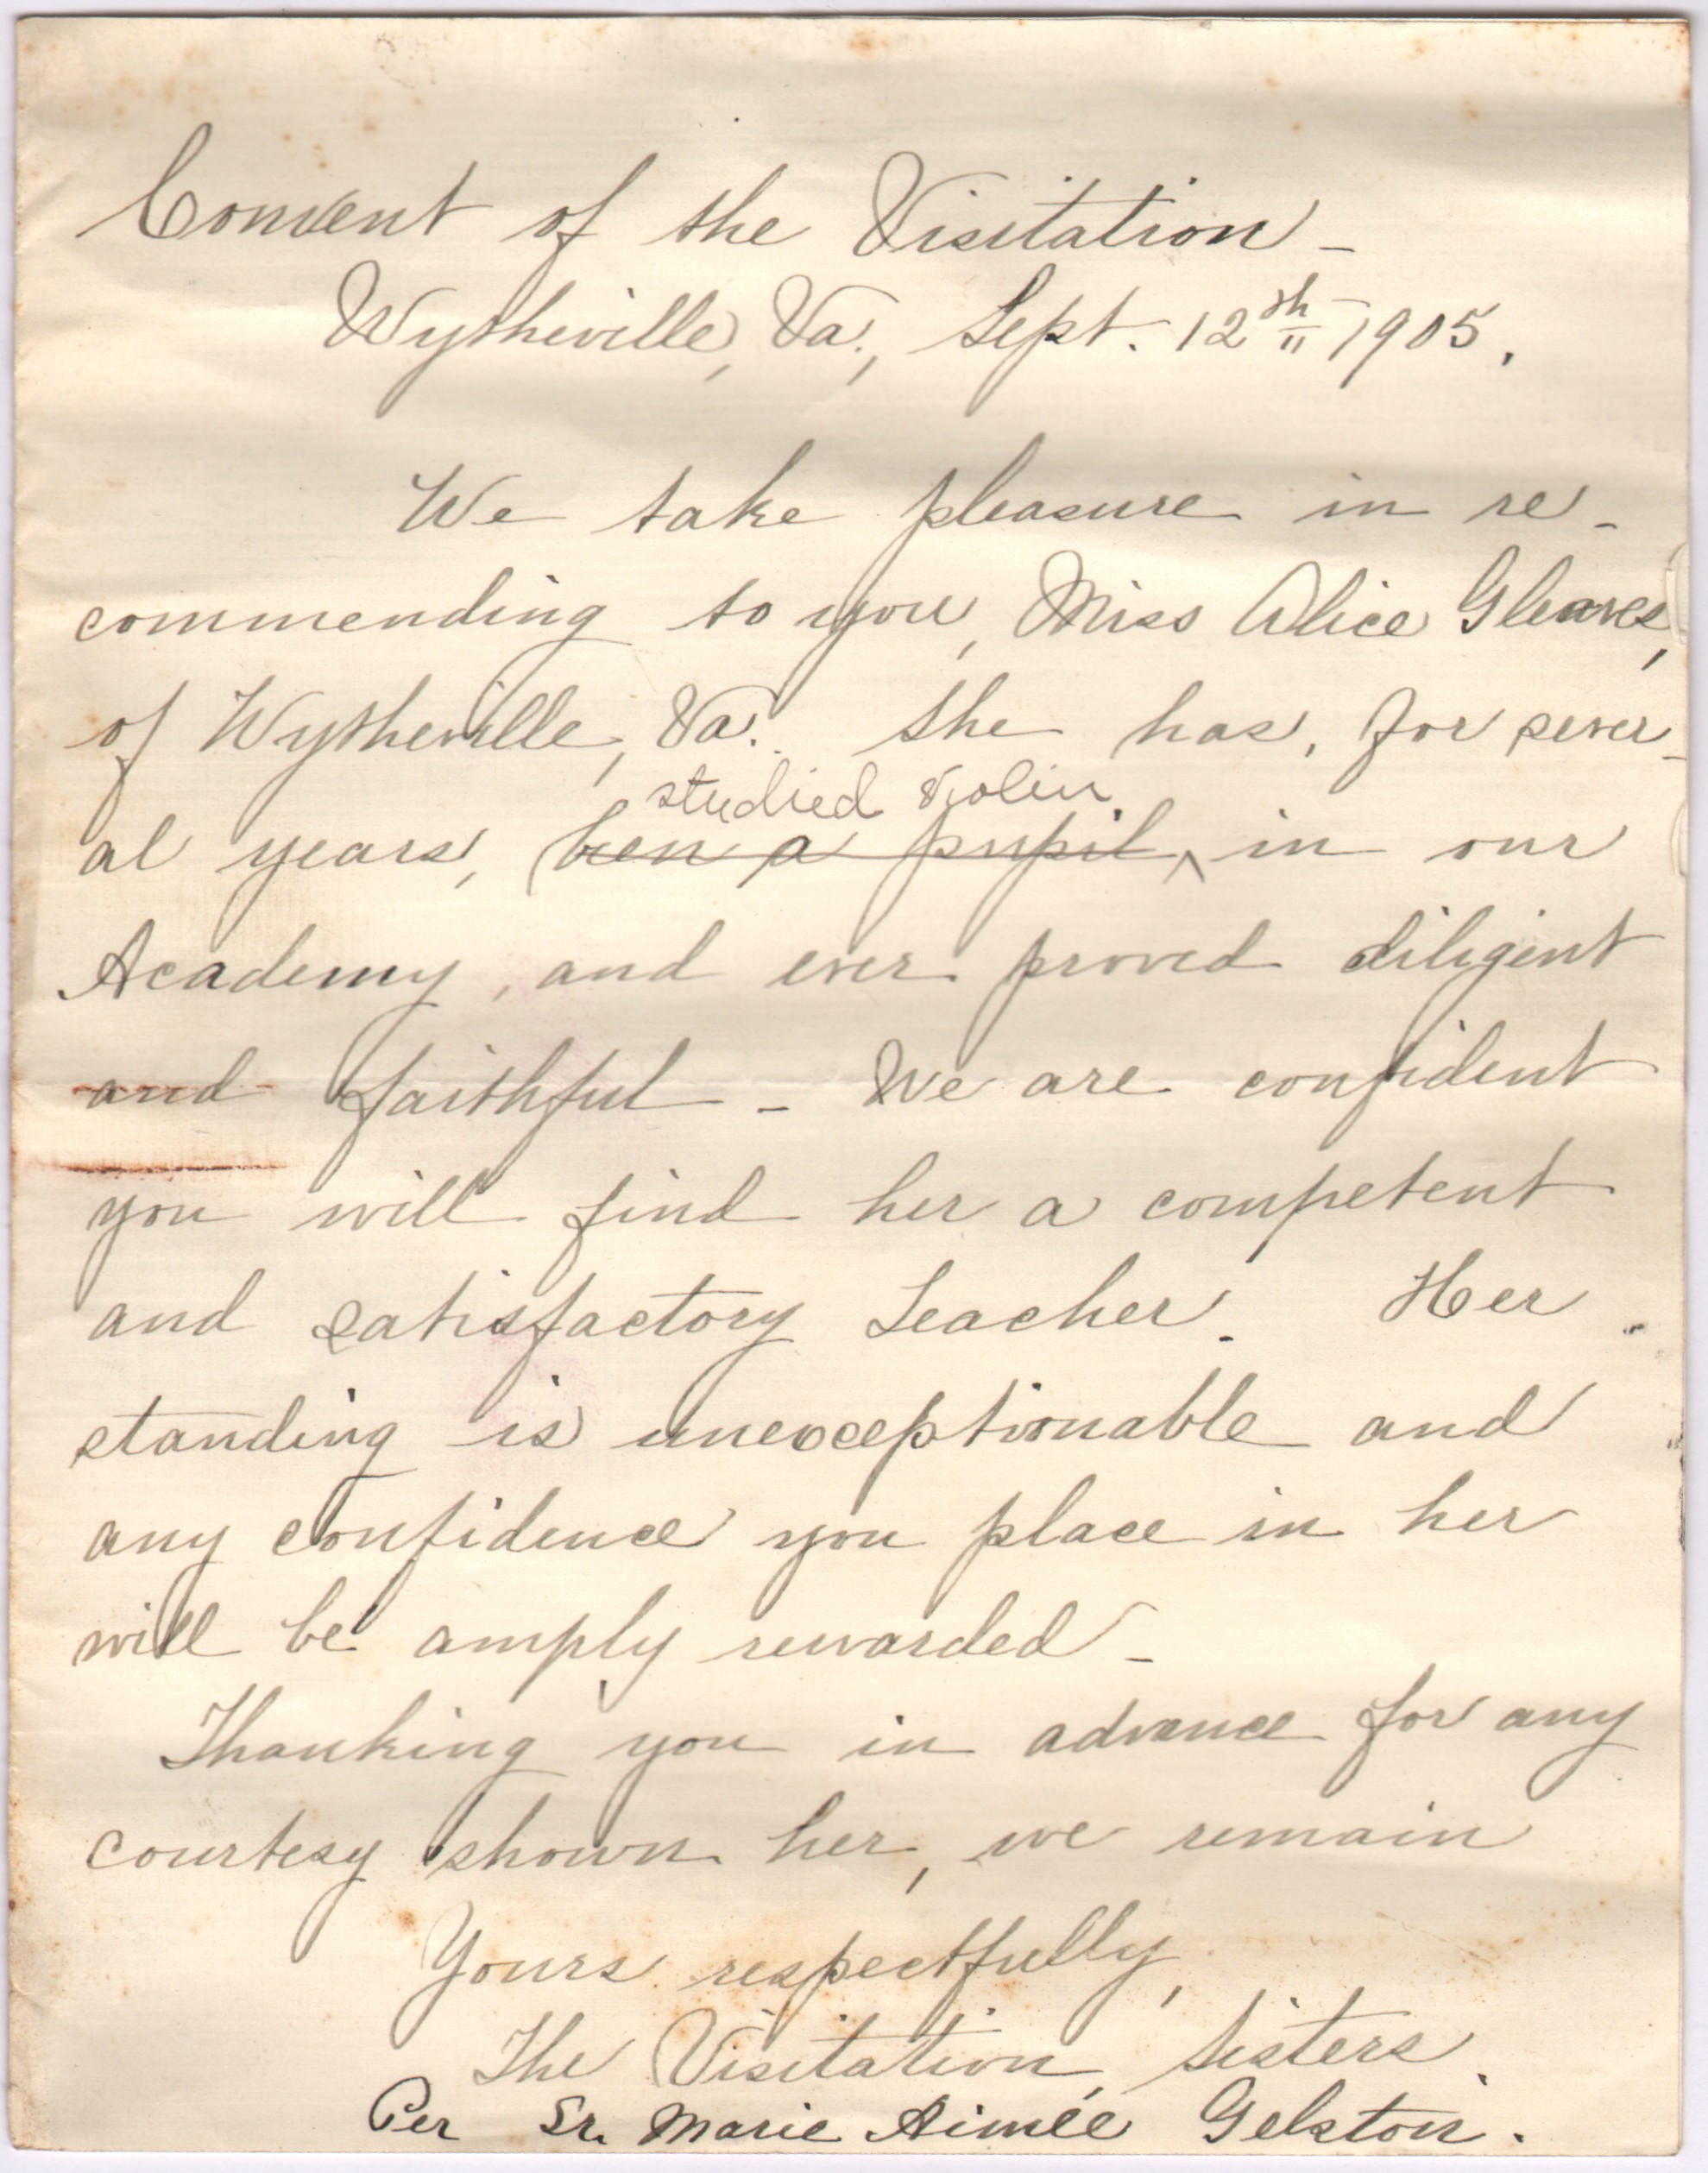 Convent of the Visitation –
Wytheville, Va., Sept. 12th – 1905.
We take pleasure in re-
commending to you, Miss Alice Gleaves,
of Wytheville, Va. She has, for sever-
studied violin
al years, been a pupil ^ in our
Academy, and ever proved diligent
and faithful – We are confident
you will find her a competent
and satisfactory teacher. Her
standing is unexceptionable and
any confidence you place in her
will be amply rewarded –
Thanking you in advance for any
courtesy shown her, we remain
Yours respectfully,
The Visitation Sisters.
Per Sr. Marie Aimée Gelston.